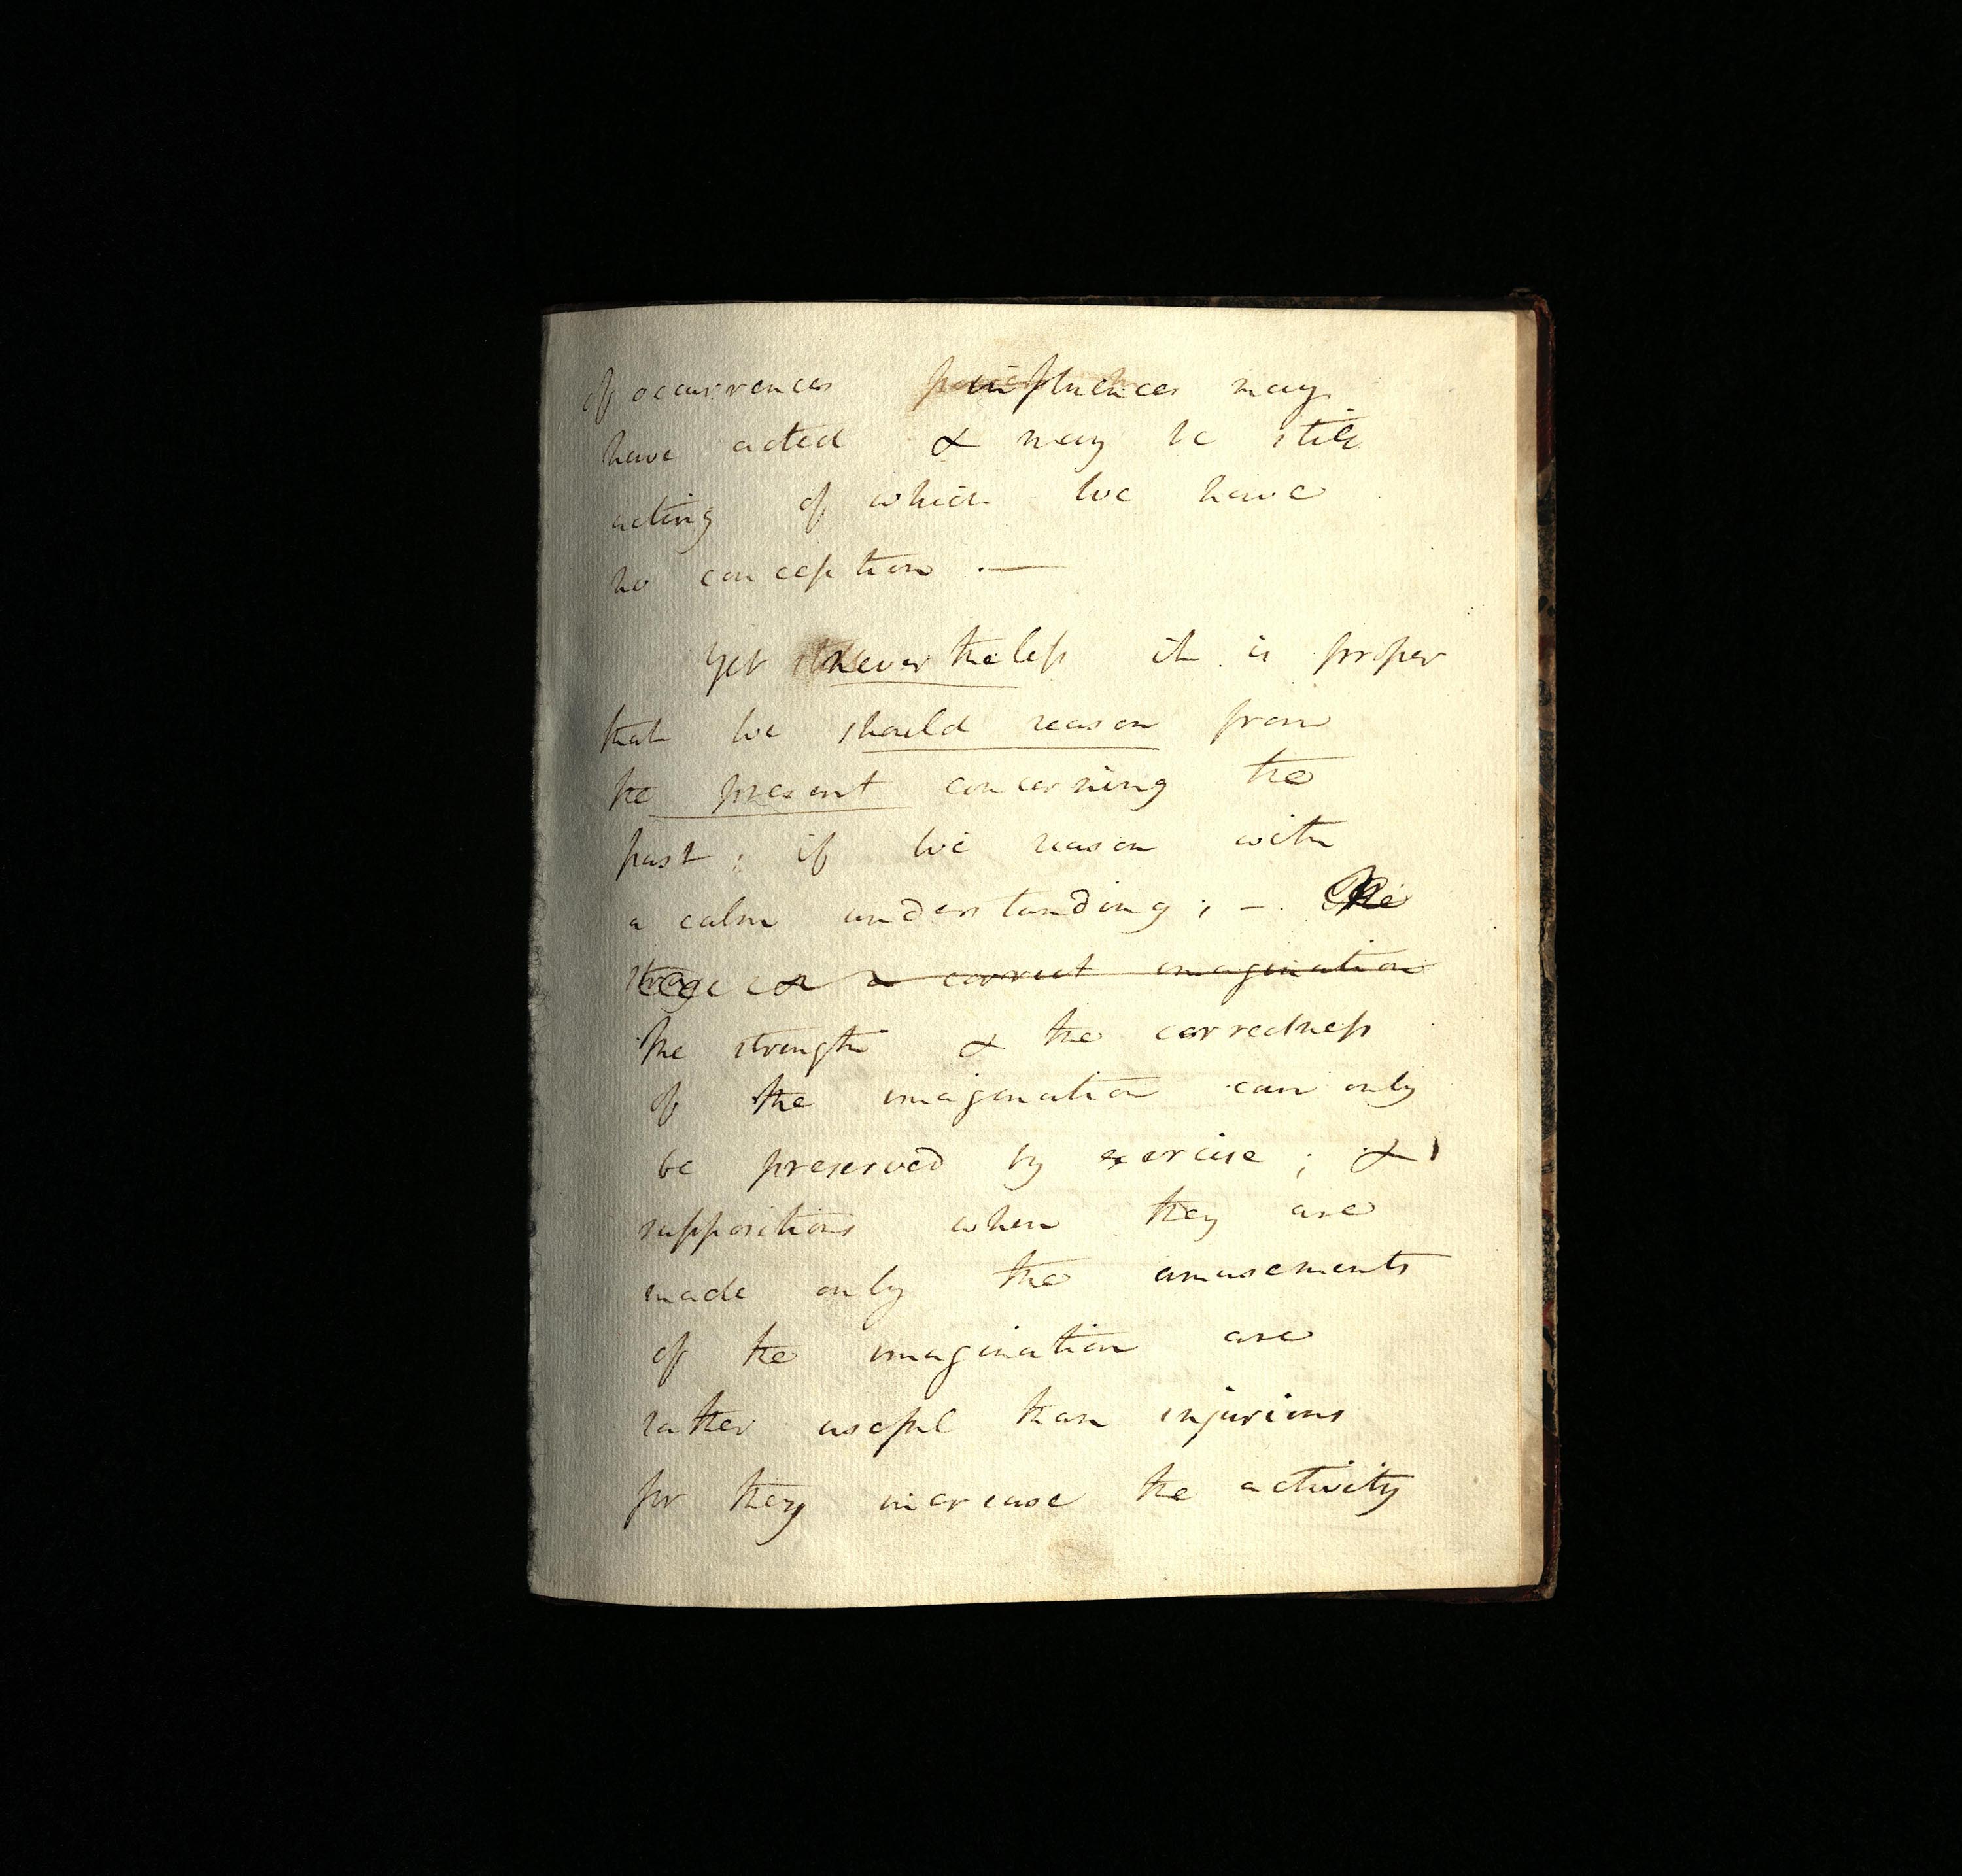 of occurrences influences may
have acted & may be still
acting of which we have
no conception . —
Yet nevertheless it is proper
that we should reason from
the present concerning the
past ; if we reason with
a calm understanding ; – The
a correct imagination
The strength & the correctness
of the imagination can only
be preserved by exercise ; &
suppositions when they are
made only the amusements
of the imagination are
rather useful than injurious
for they increase the activity